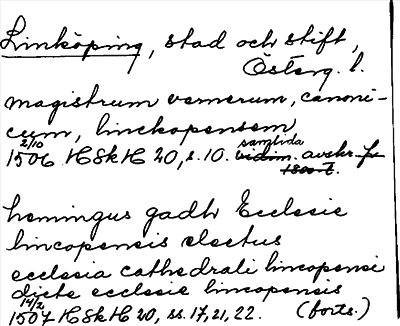 Linköping, stad och stift,
Österg. l.
magistrum vernerum, canoni-
cum, linckopensem
2/10 samtida
1506 HSkH 20, s. 10. vidim. avskr. fr
1800-t.
hemingus gadh Ecclesie
lincopensis electus
ecclesia cathedrali lincopensi
dicte ecclesie lincopensis
14/2
1507 HSkH 20, ss. 17, 21, 22. (forts.)